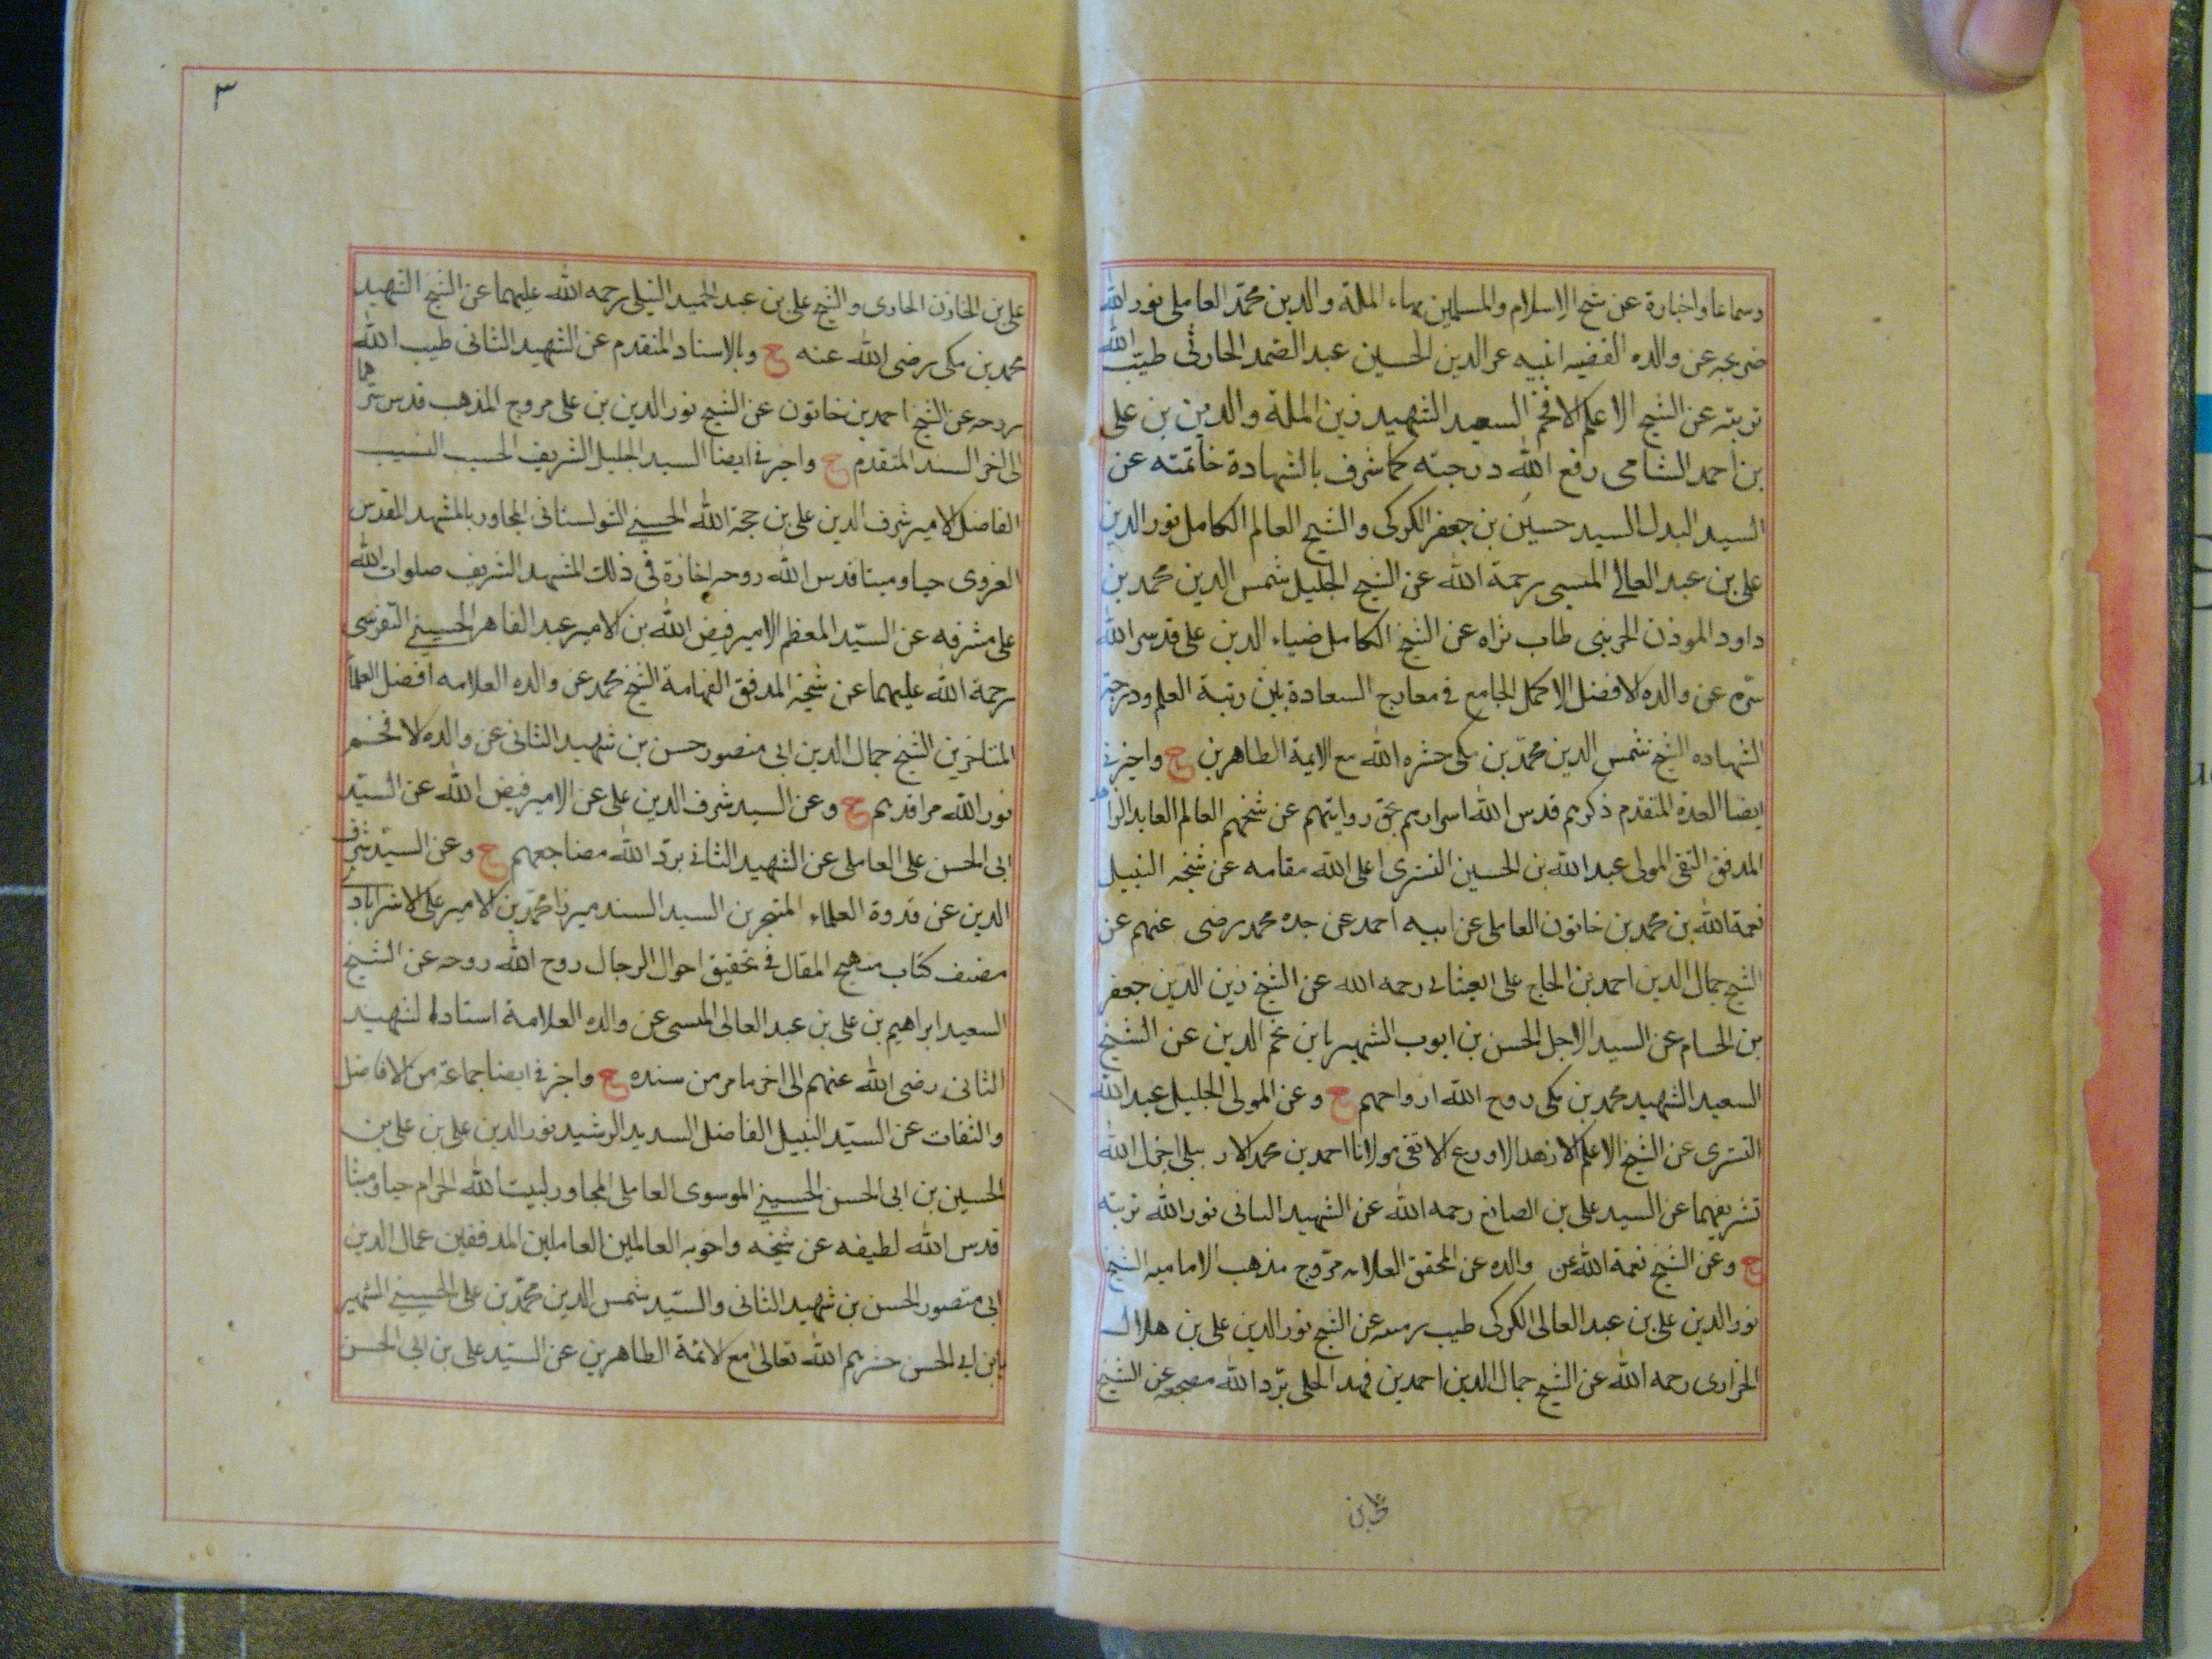 وسماعا واجازة عن شيخ الاسلام والمسلمين بهاء الملة والدين محمد العاملى نور الله
ضريحه عن والده الفقيه النبيه عز الدين الحسين عبد الصمد الحارثى طيب الله
تربته عن الشيخ الاعلم الافخم السعيد الشهيد زين الملة والدين بن على
بن احمد الشامى رفع الله درجته كما شرف بالشهادة خاتمته عن
السيد البدل السيد حسين بن جعفر الكركى والشيخ العالم الكامل نور الدين
على بن عبد العالى الميسى رحمة الله عن الشيخ الجليل شمس الدين محمد بن
داود الموذن الجزينى طاب ثراه عن الشيخ الكامل ضياء الدين على قدس الله
سره عن والده الافضل الاكمل الجامع فى معارج السعادة بين رتبة العلم ودرجة
الشهاده الشيخ شمس الدين محمد بن مكى حشره الله مع الايمة الطاهرين ح واخبرنى
ايضا العدة المتقدم ذكرهم قدس الله اسرارهم بحق روايتهم عن شيخهم العالم العابد الزاهد
المدقق التقى المولى عبد الله بن الحسين التسترى اعلى الله مقامه عن شيخه النبيل
نعمة الله بن محمد بن خاتون العاملى عن ابيه احمد عن جده محمد رضى عنهم عن
الشيخ جمال الدين احمد بن الحاج على العيناثى رحمه الله عن الشيخ زين الدين جعفر
بن الحسام عن السيد الاجل الحسن بن ايوب الشهير بابن نجم الدين عن الشيخ
السعيد الشهيد محمد بن مكى روح الله ارواحهم ح وعن المولى الجليل عبد الله
التسترى عن الشيخ الاعلم الازهد الاورع الاتقى مولانا احمد بن محمد الاردبيلى اجمل الله
تشريفهما عن السيد على بن الصائغ رحمه الله عن الشهيد الثانى نور الله تربته
ح وعن الشيخ نعمة الله عن والده عن المحقق العلامه مروج مذهب الاماميه الشيخ
نور الدين على بن عبد العالى الكركى طيب رمسه عن الشيخ نور الدين على بن هلال
الجزارى رحمه الله عن الشيخ جمال الدين احمد بن فهد الحلى برد الله مضجعه عن الشيخ
على بن
٣
على بن الخازن الحارى والشيخ على بن عبد الحميد النيلى رحمه الله عليهما عن الشيخ الشهيد
محمد بن مكى رضى الله عنه ح وبالاسناد المتقدم عن الشهيد الثانى طيب الله
روحه عن الشيخ احمد بن خاتون عن الشيخ نور الدين بن على مروج المذهب قدس سرهما
الى اخر السند المتقدم ح واخبرنى ايضا السيد الجليل الشريف الحسيب النسيب
الفاضل الامير شرف الدين على بن حجة الله الحسينى الشولستانى المجاور بالمشهد المقدس
الغروى حيا وميتا قدس الله روحه اجازة فى ذلك المشهد الشريف صلوات الله
على مشرفه عن السيد المعظم الامير فيض الله بن الامير عبد القاهر الحسينى التفرشى
رحمة الله عليهما عن شيخه المدقق الفهامة الشيخ محمد عن والده العلامه افضل العلماء
المتاخرين الشيخ جمال الدين ابى منصور حسن بن شهيد الثانى عن والده الافخم
نور الله مراقدهم ح وعن السيد شرف الدين على عن الامير فيض الله عن السيد
ابى الحسن على العاملى عن الشهيد الثانى برد الله مضاجعهم ح وعن السيد شرف
الدين عن قدوة العلماء المتبحرين السيد السند ميرزا محمد بن الامير على الاشرابادى
مصنف كتاب منهج المقال فى تحقيق احوال الرجال روح الله روحه عن الشيخ
السعيد ابراهيم بن على بن عبد العالى الميسى عن والده العلامة استاد الشهيد
الثانى رضى الله عنهم الى اخر ما مر من سنده ح واخبرنى ايضا جماعة من الافاضل
والثقات عن السيد النبيل الفاضل السديد الرشيد نور الدين على بن على بن
الحسين بن ابى الحسن الحسينى الموسوى العاملى المجاور لبيت الله الحرام حيا وميتا
قدس الله لطيفه عن شيخه واخويه العالمين العاملين المدققين جمال الدين
ابى منصور الحسن بن شهيد الثانى والسيد شمس الدين محمد بن على الحسينى الشهير
بابن ابى الحسن حشرهم الله تعالى مع الائمة الطاهرين عن السيد على بن ابى الحسن